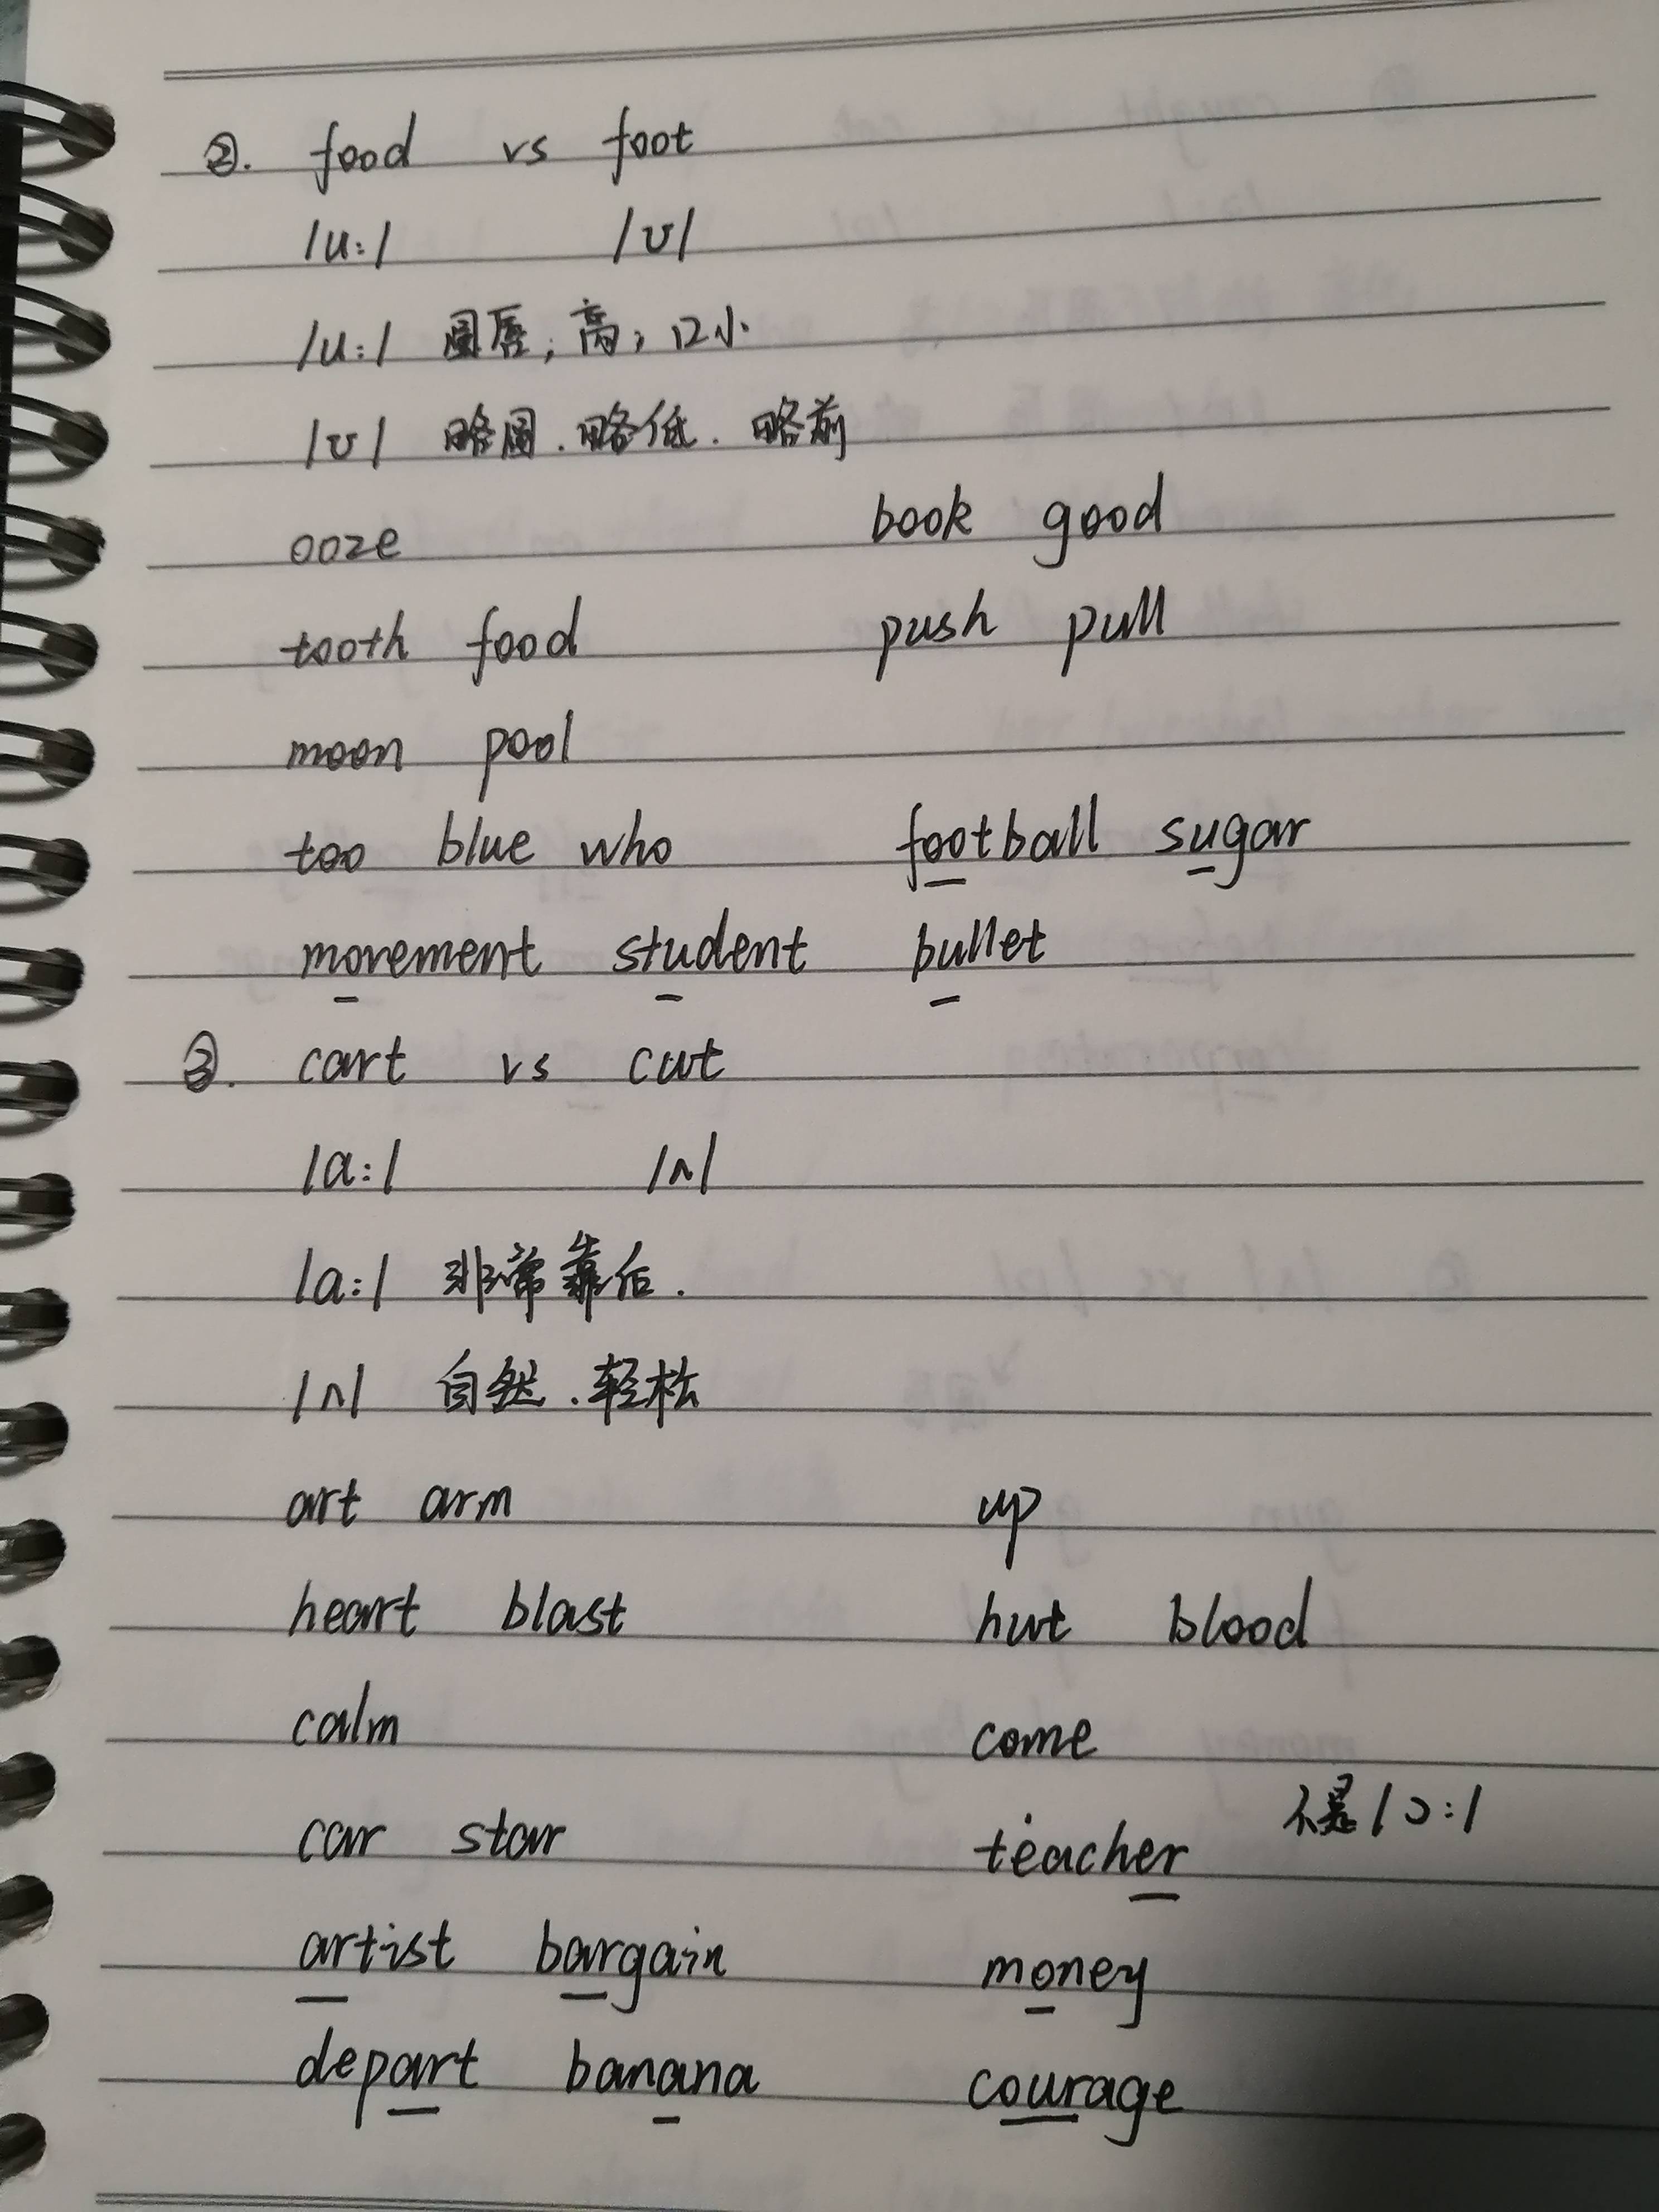 ②. food vs foot
/u:/ /ʊ/
/u:/ 圆唇; 高; 口小
/ʊ/ 略圆.略低.略前
ooze book good
tooth food push pull
moon pool
too blue who football sugar
movement student bullet
③. cart vs cut
/a:/ /ʌ/
/a:/ 非常靠后.
/ʌ/ 自然.轻松
art arm up
heart blast hut blood
calm come
不是/ɔ:/
car star teacher
artist bargain money
depart banana courage